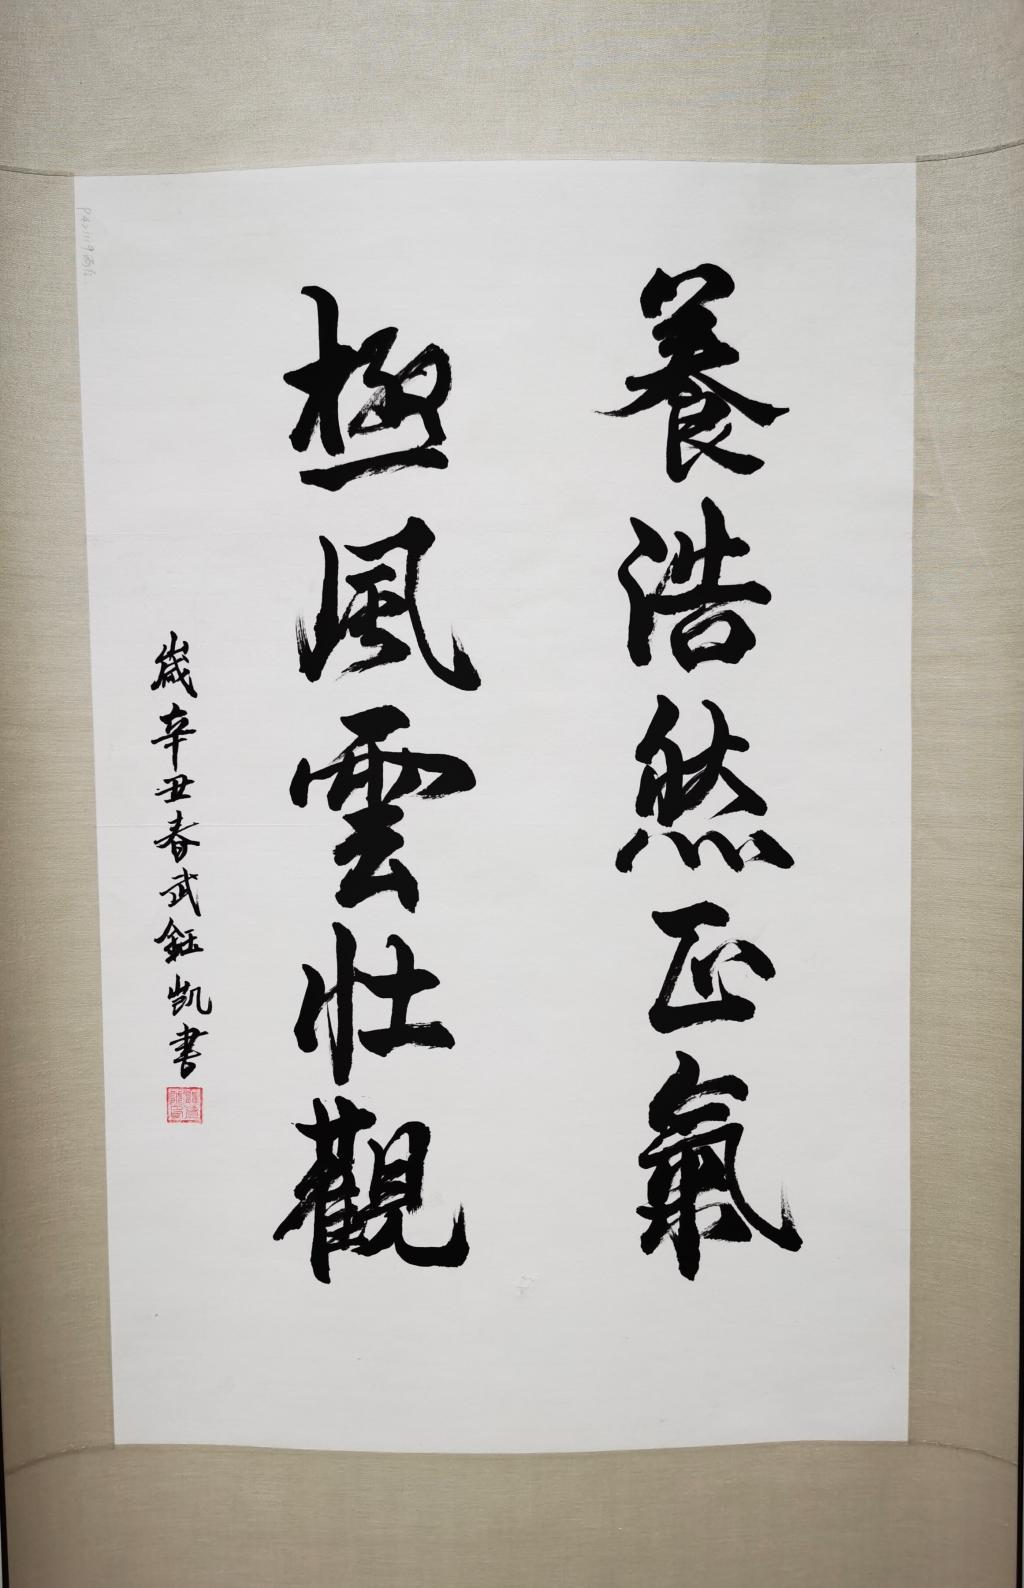 養浩然正氣
極風雲壯觀
歲辛丑春武鈺凱書